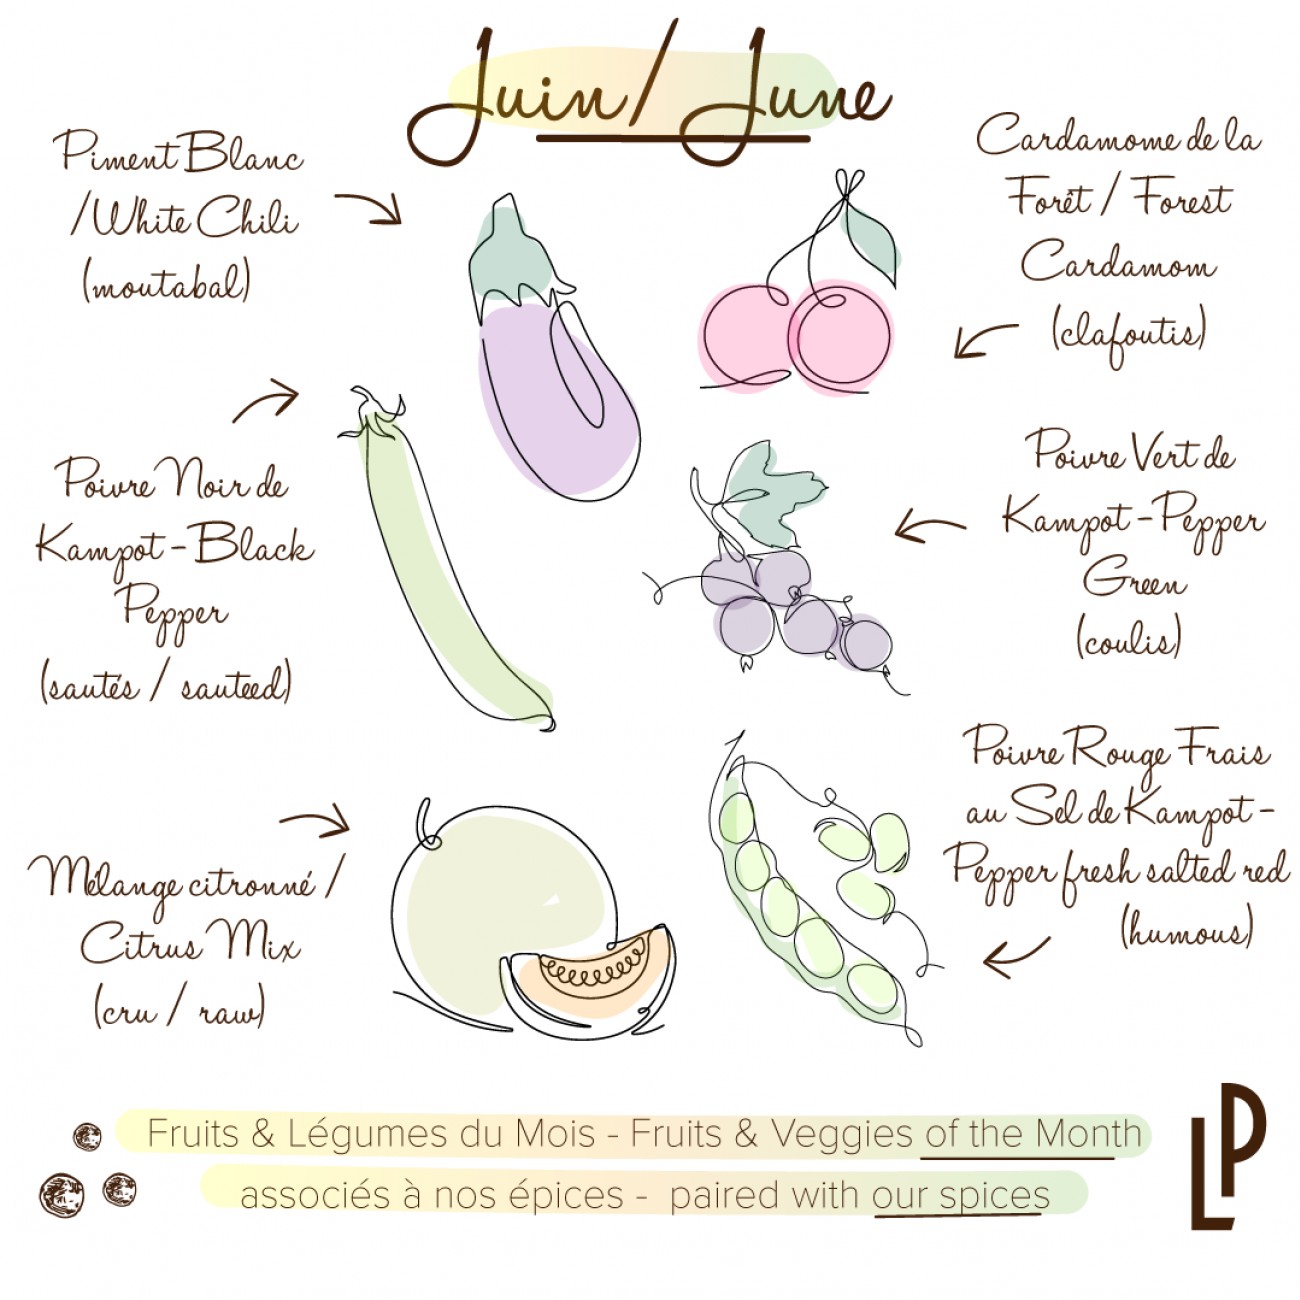 Juin / June
Piment Blanc
/White Chili
(moutabal)
Cardamome de la
Forêt / Forest
Cardamom
(clafoutis)
Poivre Noir de
Kampot - Black
Pepper
(sautés / sauteed)
Poivre Vert de
Kampot - Pepper
Green
(coulis)
Mélange citronné /
Citrus Mix
(cru / raw)
Poivre Rouge Frais
au Sel de Kampot -
Pepper fresh salted red
(humous)
Fruits & Légumes du Mois - Fruits & Veggies of the Month
associés à nos épices - paired with our spices
LP